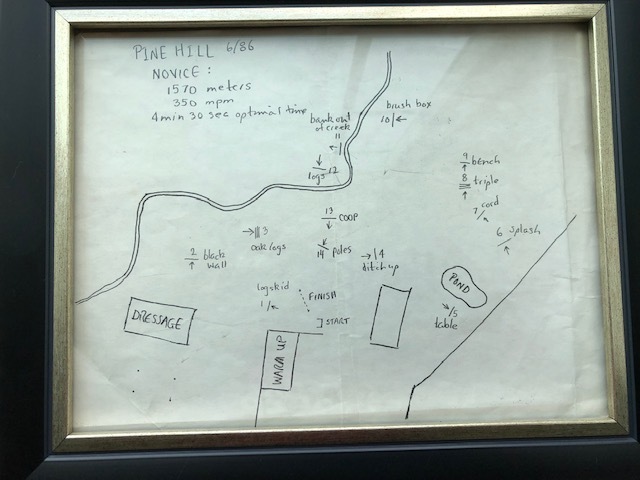 PINE HILL 6/86
NOVICE:
1570 meters
350 mpm
4 min 30 sec optimal time
bank out
of creek
11
brush box
10
logs 12
9 bench
8 triple
7 cord
6 splash
13 COOP
3
oak logs
2 black
wall
14 poles
4
ditch up
log skid
1
FINISH
START
POND
5
table
DRESSAGE
WARM UP